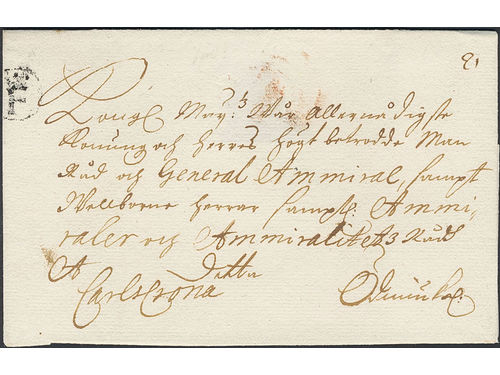 Kongl May:ts Wår Allernådigste
Konung och herres högt betrodde Man
Råd och General Ammiral, sampt
Wellborne herrar sampt: Ammi,
raler och Ammiralitetz Råd
A detta
CarlsCrona Ödmiukel: